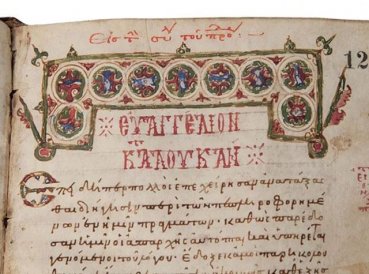 Εἰς τ συ του προ
12
ΕΥΑΓΓΕΛΙΟΝ
ΚΑ ΛΟΥΚΑΝ
Ἐπειδήπερ πολλοὶ ἐπεχείρησαν ἀνατάξα
σθαι διήγησιν περὶ τῶν πεπληροφορημέ
νων ἐν ἡμῖν πραγμάτων. καθὼς παρέδο
σαν ἡμῖν οἱ ἀπαρχῆς αὐτόπται καὶ ὑπηρέται
γενόμενοι τοῦ λόγου. ἔδοξε κἀμοὶ παρηκολου
καθεξῆς